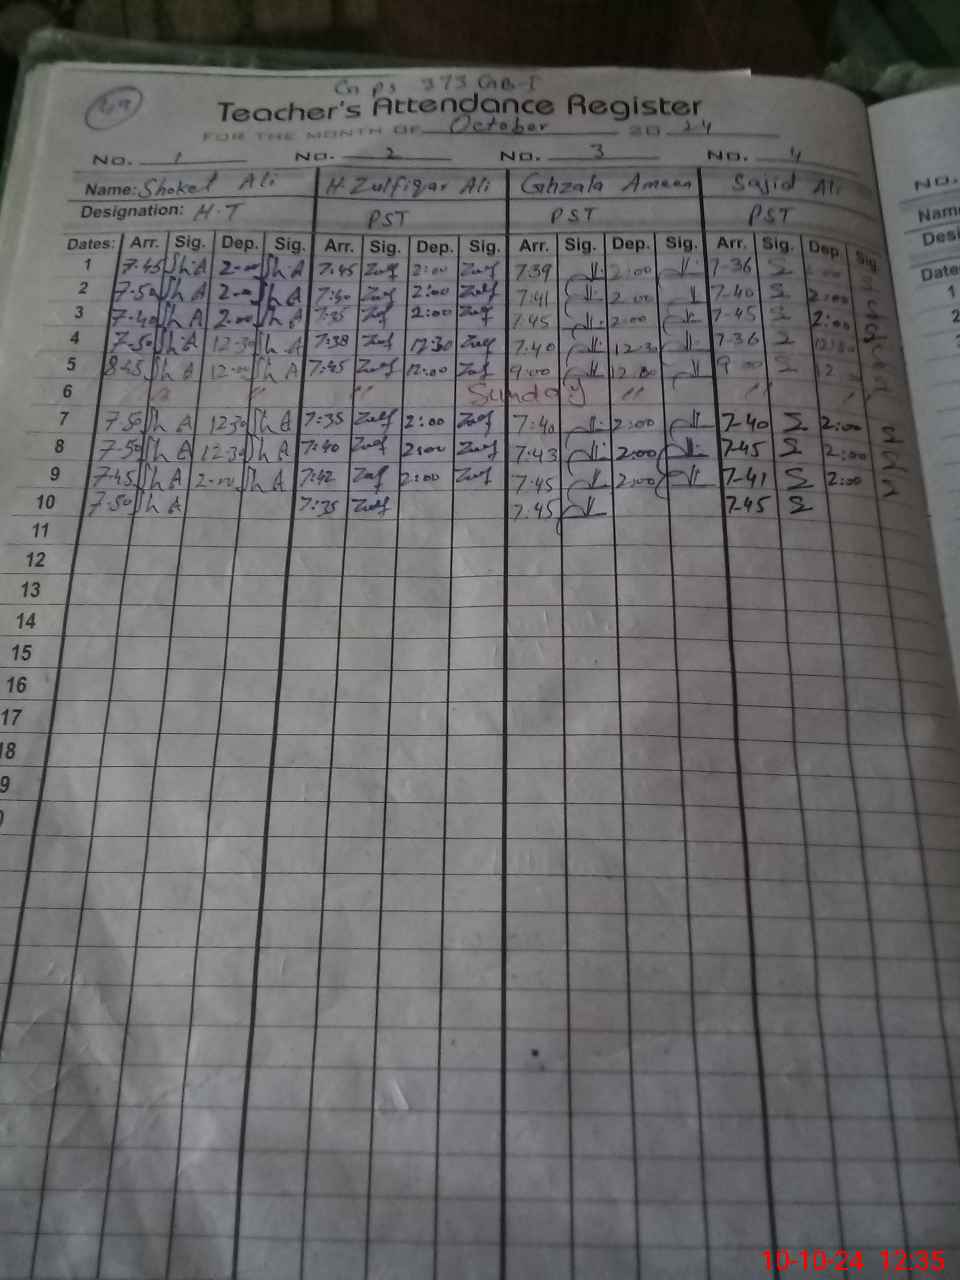 49
Teacher's Attendance Register
FOR THE MONTH OF October 20 24
No. 1 No. 2 No. 3 No. 4
Name: Shoket Ali H. Zulfiqar Ali Ghzala Ameen Sajid Ali
Designation: H.T PST PST PST
Dates: Arr. Sig. Dep. Sig. Arr. Sig. Dep. Sig. Arr. Sig. Dep. Sig. Arr. Sig. Dep. Sig.
1 7.45 Sh.A 2-00 Sh A 7:45 Zulf 2:00 Zulf 7:39 2:00 7-36
2 7.50 Sh A 2-00 Sh A 7:40 Zulf 2:00 Zulf 7:41 2:00 7-40 2:00
3 7.40 Sh A 2.00 Sh A 7:35 Zulf 2:00 Zulf 7:45 2:00 7-45 2:00
4 7.50 Sh A 12-30 Sh A 7:38 Zulf 12:30 Zulf 7:40 12:30 7-36 12:30
5 8.45 Sh A 12-00 Sh A 7:45 Zulf 12:00 Zulf 9:00 12:00 9 00 12
6 " " " Sunday " " "
7 7.50 Sh A 12-30 Sh A 7:35 Zulf 2:00 Zulf 7:40 2:00 7-40 2:00
8 7.50 Sh A 12-30 Sh A 7:40 Zulf 2:00 Zulf 7:43 2:00 7-45 2:00
9 7.45 Sh A 2-00 Sh A 7:42 Zulf 2:00 Zulf 7:45 2:00 7-41 2:00
10 7.50 Sh A 7:35 Zulf 7:45 7-45
11
12
13
14
15
16
17
18
9
No.
Name
Desi
Date
1
2
10-10-24 12:35